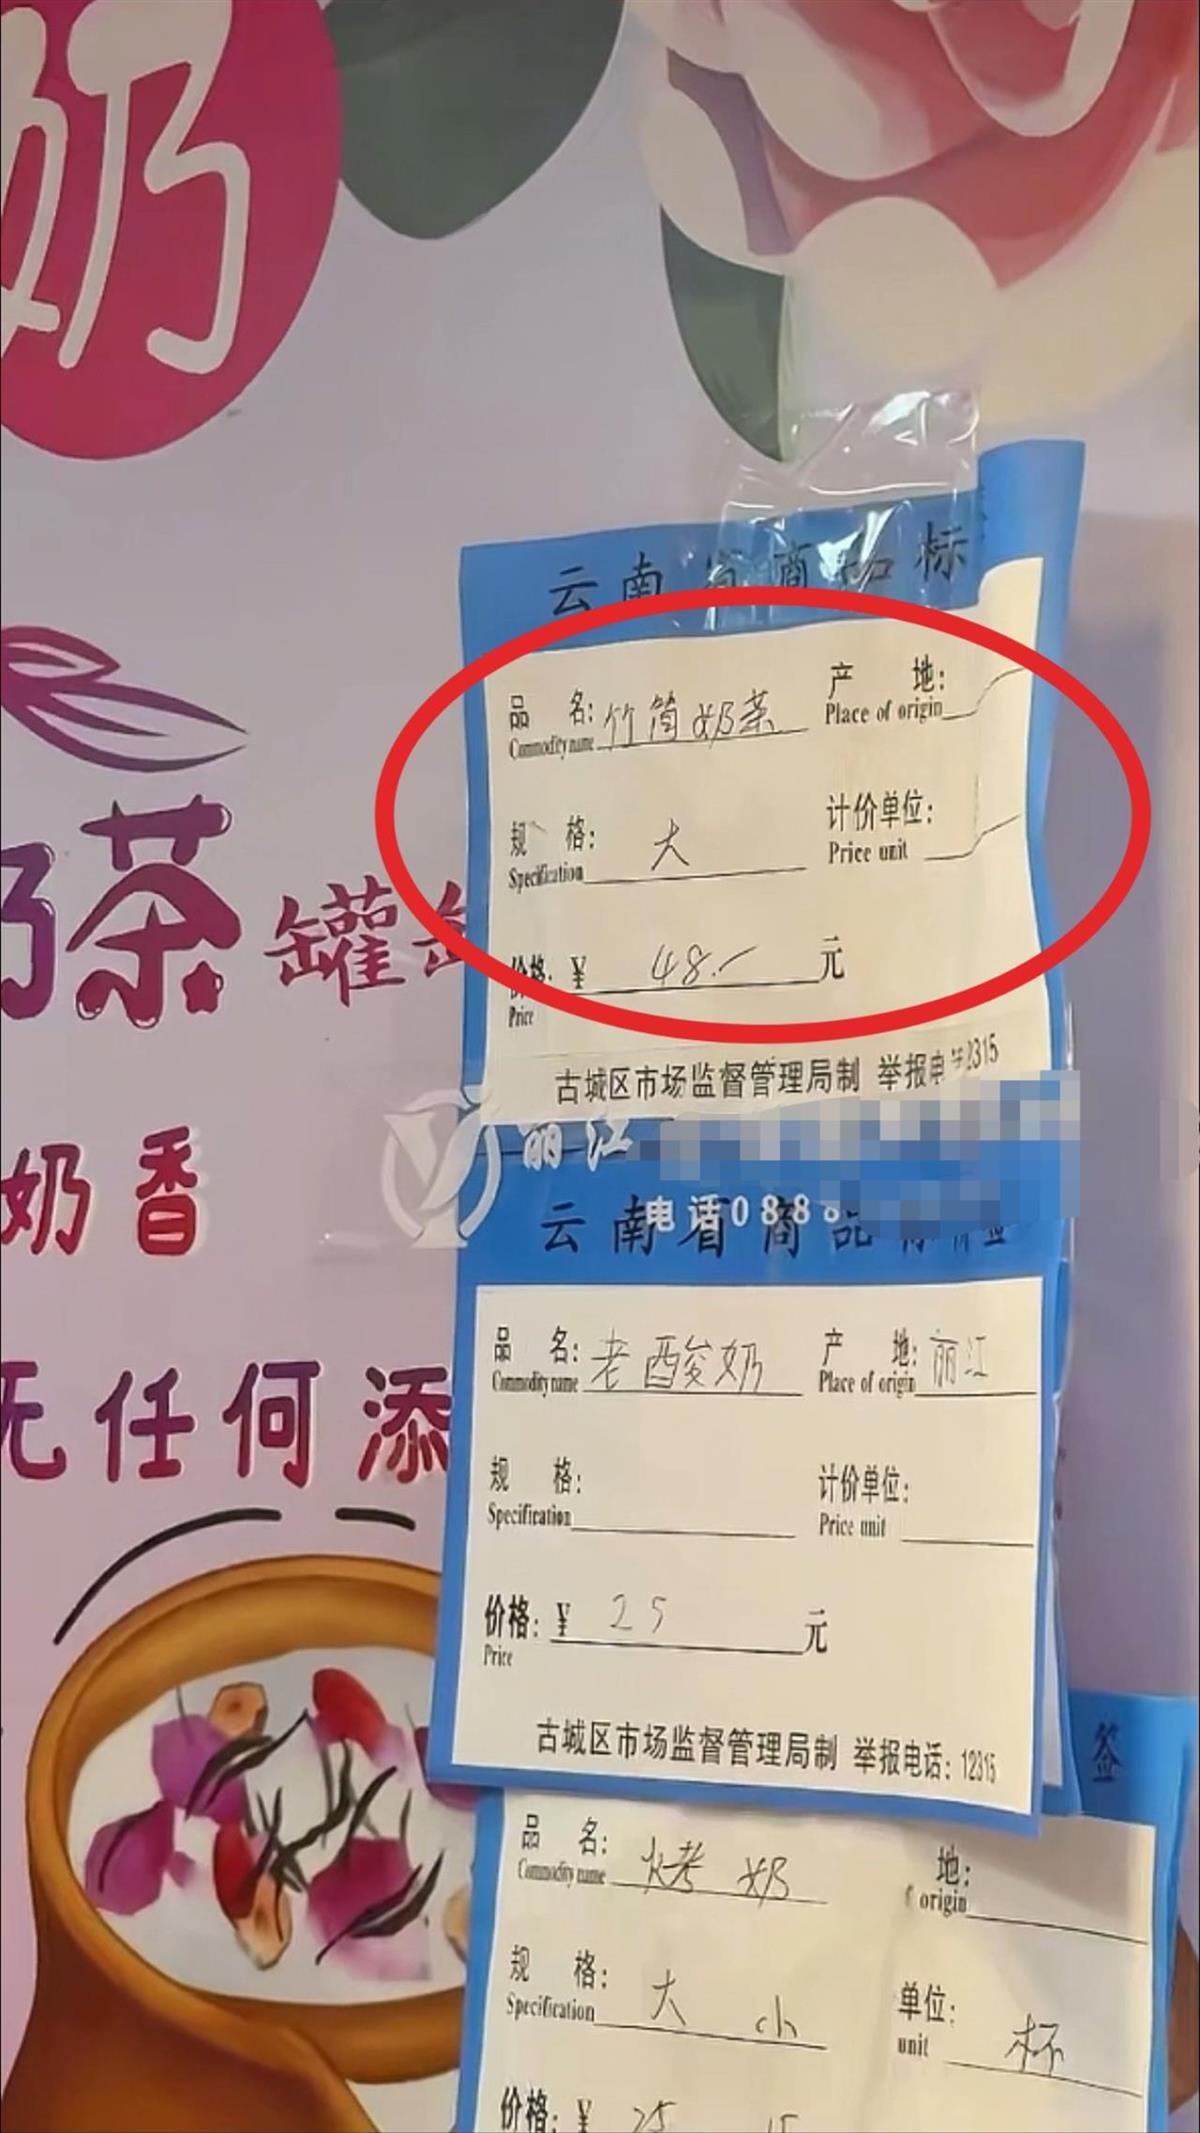 奶
云南省商品标
品名: 竹筒奶茶
Commodity name
产地:
Place of origin
规格: 大
Specification
计价单位:
Price unit
奶茶 罐
价格: ¥ 48.- 元
Price
古城区市场监督管理局制 举报电 2315
丽江
电话0888
奶香
云南省商品标价签
品名: 老酸奶
Commodity name
产地: 丽江
Place of origin
无任何添
规格:
Specification
计价单位:
Price unit
价格: ¥ 25 元
Price
古城区市场监督管理局制 举报电话: 12315
签
品名: 烤奶
Commodity name
地:
origin
规格: 大 小
Specification
单位: 杯
unit
价格: ¥ 25 15